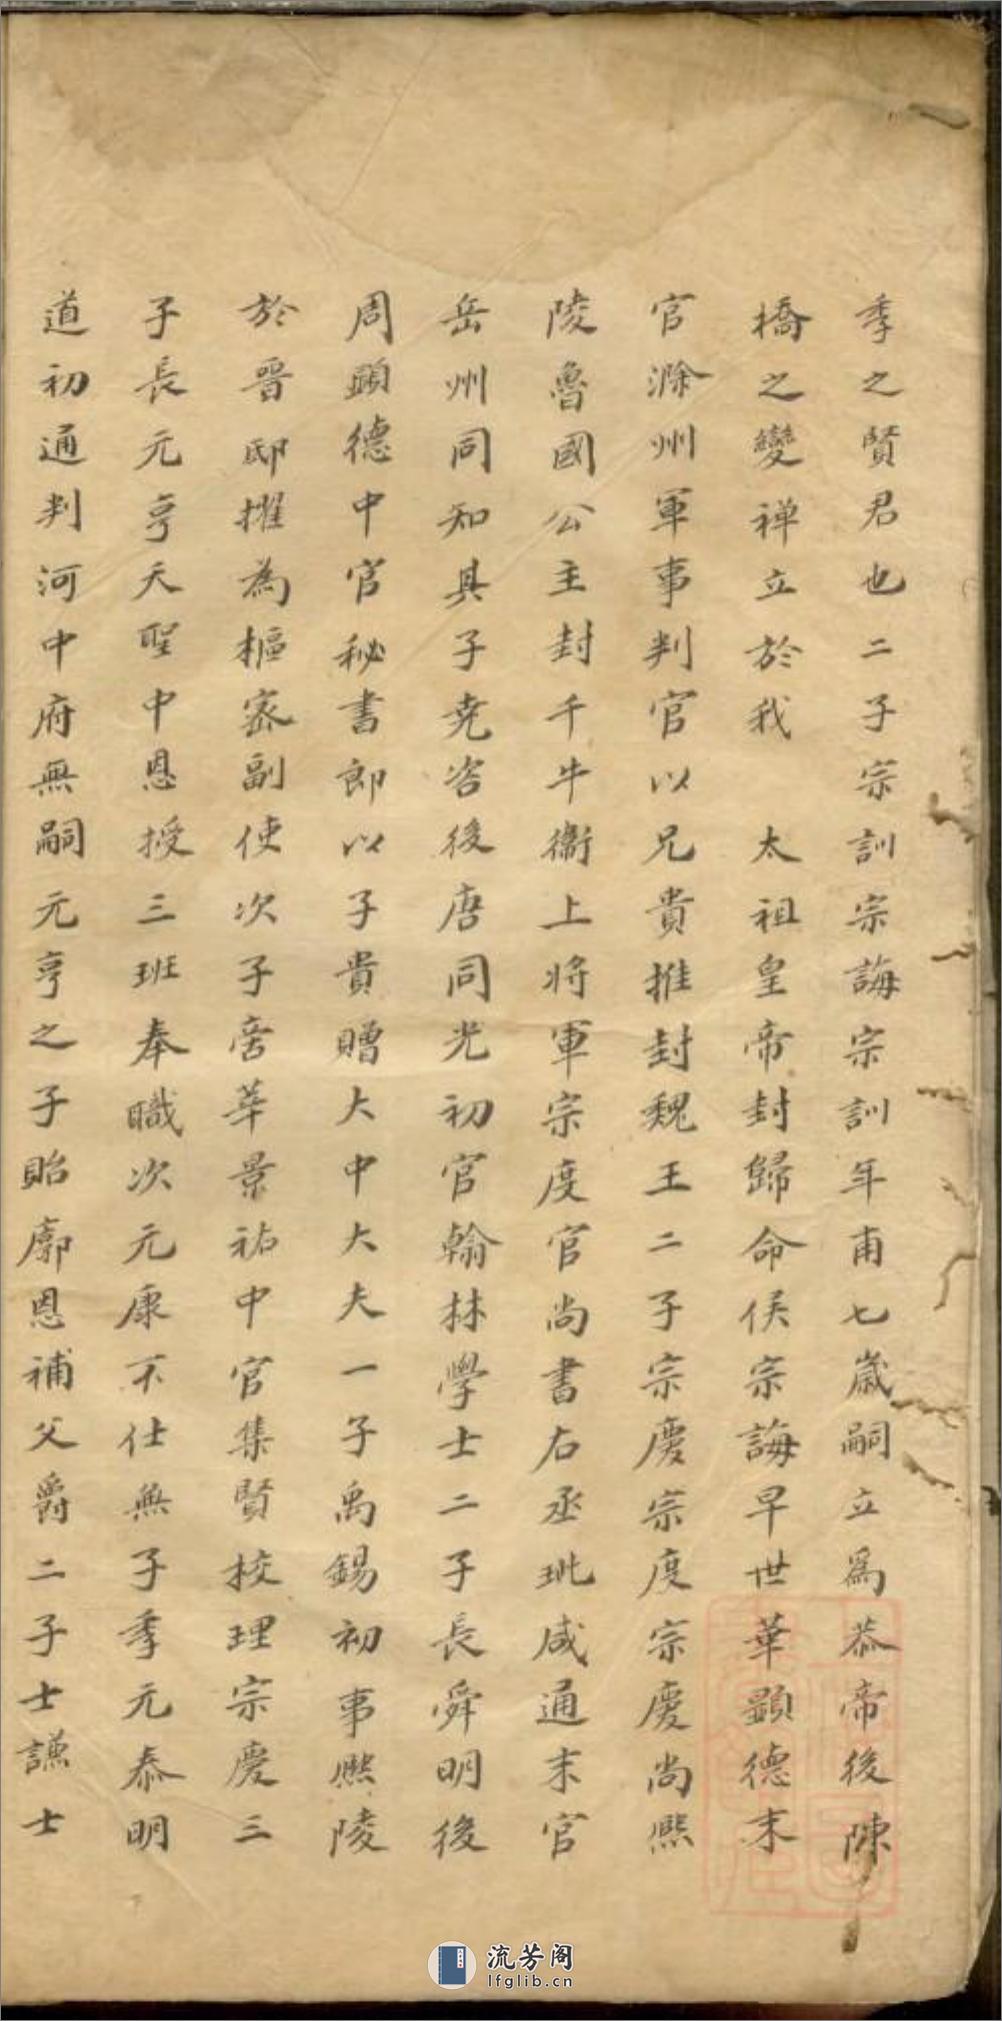 季之賢君也二子宗訓宗誨宗訓年甫七歲嗣立爲恭帝後陳
橋之變禅立於我　太祖皇帝封歸命侯宗誨早世華顕德末
官滁州軍事判官以兄貴推封魏王二子宗慶宗度宗慶尚熙
陵魯國公主封千牛衞上將軍宗度官尚書右丞玭咸通末官
岳州同知具子尭咨後唐同光初官翰林學士二子長舜明後
周顕德中官秘書郎以子貴贈大中大夫一子禹錫初事熈陵
於晋邸擢為樞密副使次子㫄華景祐中官集賢校理宗慶三
子長元亨天聖中恩授三班奉職次元康不仕無子季元泰明
道初通判河中府無嗣元亨之子貽廓恩補父爵二子士謙士
流芳阁
lfglib.cn